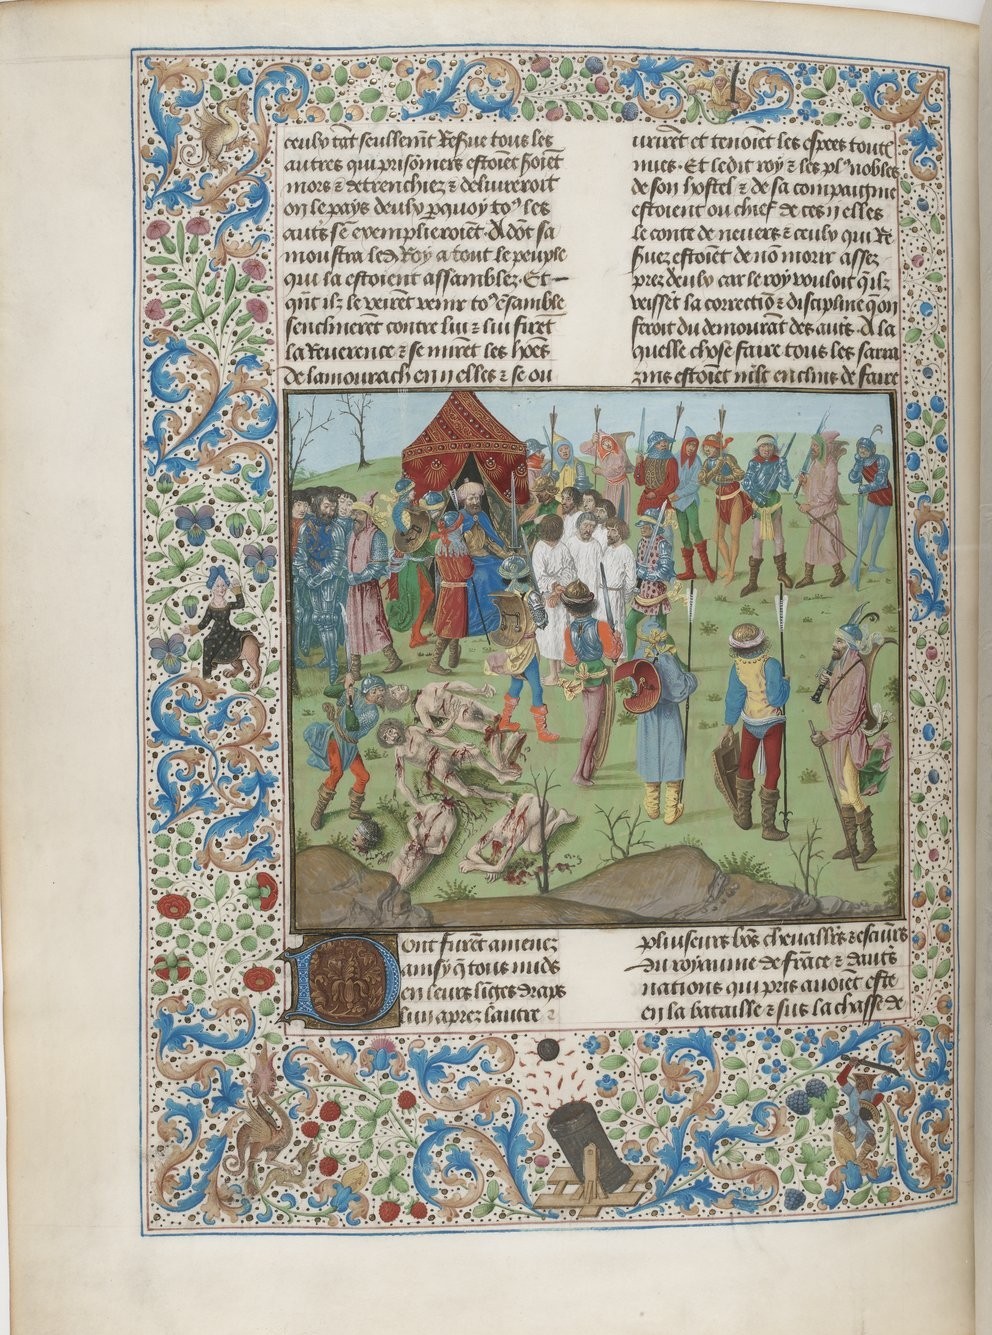 ceulx tāt seullemt̄ Reſue tous les
autres qui priſōniers eſtoiēt ſoiēt
mors ⁊ detrenchiez ⁊ delivreroit
on le pays deulx pquoy toꝰ les
aut̄s ſē exemplieroiēt. A dōt ſa
mouſtra led̄ Roy a tout le peuple
qui la eſtoient aſſamblez. Et
qn̄t ilz le veirēt venir toꝰ ēſamble
ſenclinerēt contre lui ⁊ lui firēt
la Reuerence ⁊ ſe mirēt les hōes
de lamourach en ij elles ⁊ ſe ou
urirēt et tenoiēt les eſpees toute
nues. Et ledit roy ⁊ les plꝰ nobles
de ſon hoſtel ⁊ de ſa compaignie
eſtoient ou chief de ces ij elles
le conte de neuers ⁊ ceulx qui Re
ſuez eſtoiēt de nō morir aſſez
prez deulx car le roy vouloit q̄ ilz
veiſſēt la correctiō ⁊ diſcipline q̄ on
feroit du demourāt des aut̄s. A la
quelle choſe faire tous les ſarra
zins eſtoiēt enclins de faire
Dont furēt amenez
ainſy q̄ tous nudz
en leurs liges draps
lun aprez lautre ⁊
pluiſeurs bōs cheualiers ⁊ eſcuiers
du royaume de frāce ⁊ dautꝭ
nations qui pris auoiēt eſte
en la bataille ⁊ ſus la chaſſe de